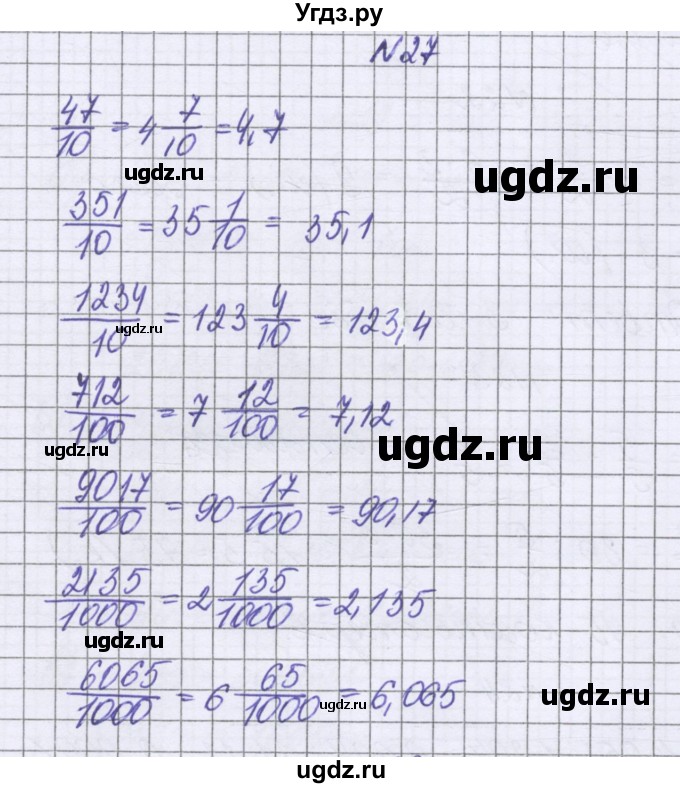 Угдз.ру
№27
47/10 = 4 7/10 = 4,7
ugdz.ru
ugdz.ru
351/10 = 35 1/10 = 35,1
1234/10 = 123 4/10 = 123,4
ugdz.ru
712/100 = 7 12/100 = 7,12
ugdz.ru
ugdz.ru
9017/100 = 90 17/100 = 90,17
2135/1000 = 2 135/1000 = 2,135
ugdz.ru
6065/1000 = 6 65/1000 = 6,065
ugdz.ru
ugdz.ru
ugdz.ru